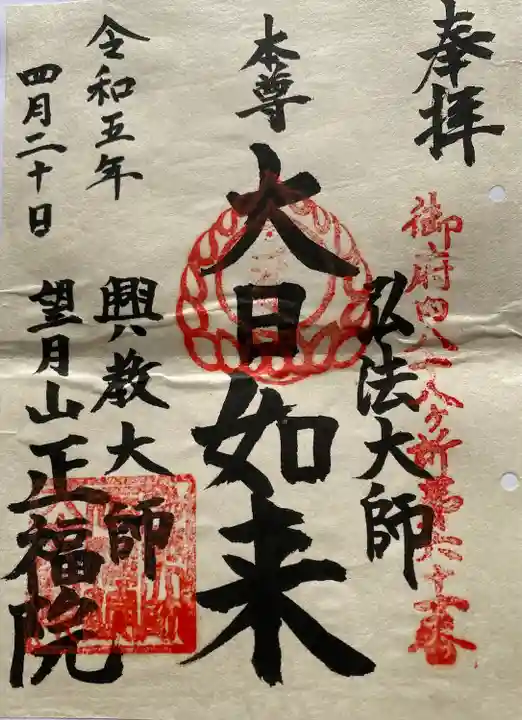 奉拝
御府内八十八ヶ所第六十一番
弘法大師
本尊
大日如来
興教大師
令和五年
四月二十日
望月山正福院